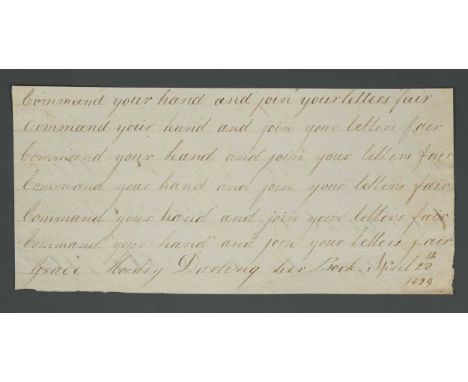 Command your hand and join your letters fair
Command your hand and join your letters fair
Command your hand and join your letters fair
Command your hand and join your letters fair
Command your hand and join your letters fair
Command your hand and join your letters fair
Grace Horsley Darling her Book April 20th
1829